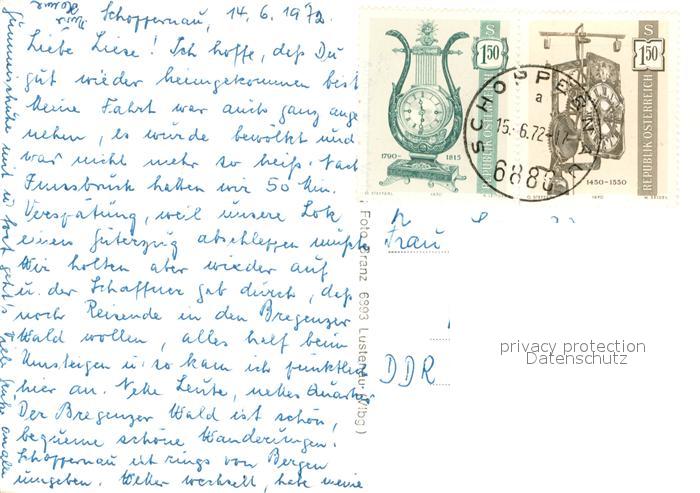 Schoppernau, 14.6.1972.
Liebe Liese! Ich hoffe, daß Du
gut wieder heimgekommen bist
Meine Fahrt war auch ganz ange
nehm, es wurde bewölkt und
war nicht mehr so heiß. Nach
Innsbruck hatten wir 50 Min.
Verspätung, weil unsere Lok
einen Güterzug abschleppen mußte
Wir holten aber wieder auf
u. der Schaffner gab durch, daß
noch Reisende in den Bregenzer
Wald wollen, alles half beim
Umsteigen u. so kam ich pünktlich
hier an. Nette Leute, nettes Quartier
Der Bregenzer Wald ist schön,
bequeme schöne Wanderungen.
Schoppernau ist rings von Bergen
umgeben. Wetter wechselt, habe meine
S 1.50
1790-1815
REPUBLIK ÖSTERREICH
1970
S 1.50
1450-1550
REPUBLIK ÖSTERREICH
1970
SCHOPPERNAU
a
15.-6.72-17
6886
Foto Branz 6893 Lustenau (Vlbg)
Frau
DDR
privacy protection
Datenschutz